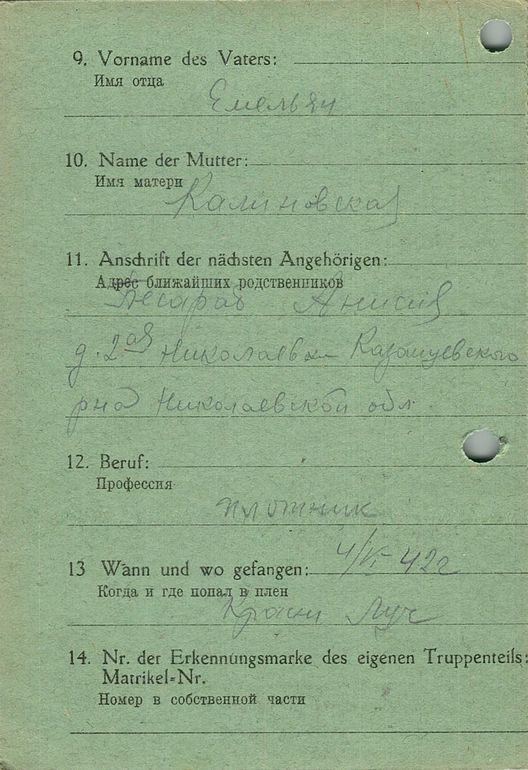 9. Vorname des Vaters:
Имя отца
Емельян
10. Name der Mutter:
Имя матери
Калиновская
11. Anschrift der nächsten Angehörigen:
Адрес ближайших родственников
Анисия
д. 2ая Николаевка
рна Николаевской обл.
12. Beruf:
Профессия
плотник
13 Wann und wo gefangen: 4/VI 42г
Когда и где попал в плен
Красн Луч
14. Nr. der Erkennungsmarke des eigenen Truppenteils:
Matrikel=Nr.
Номер в собственной части